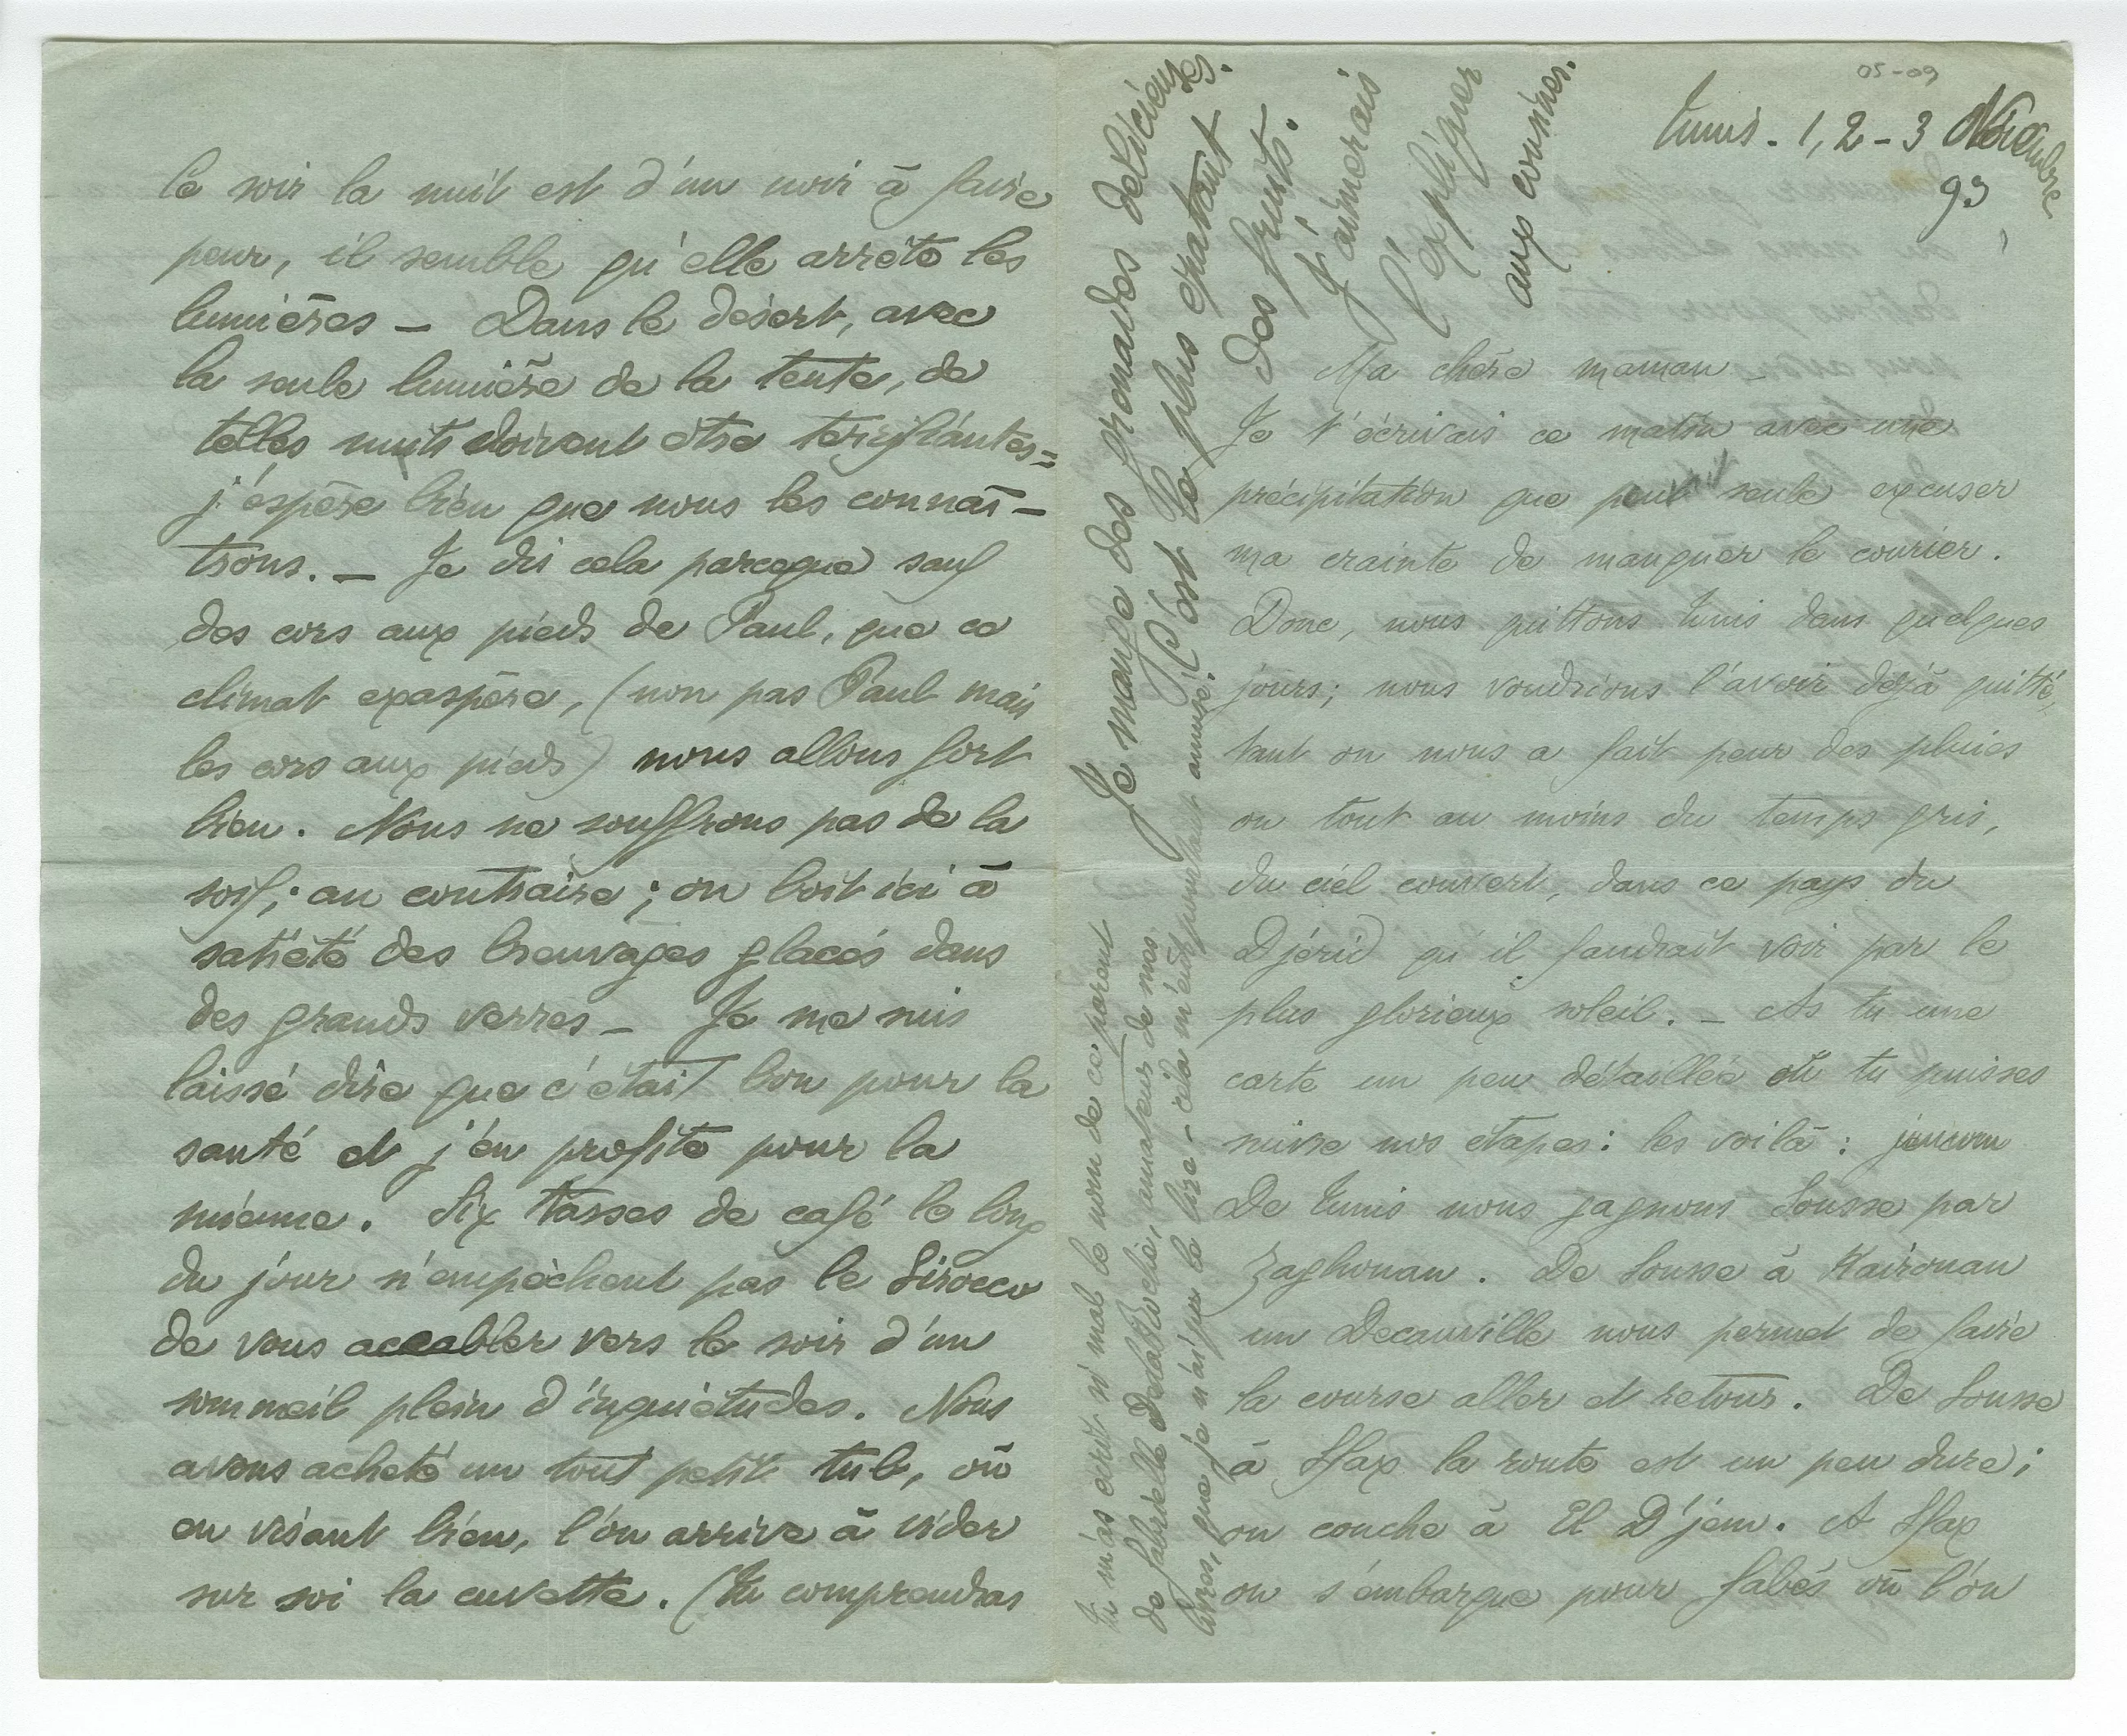 le soir la nuit est d'un noir à faire
peur, il semble qu'elle arrête les
lumières — Dans le désert, avec
la seule lumière de la tente, de
telles nuits doivent être terrifiantes =
j'espère bien que nous les connaî-
trons. — Je dis cela parceque sauf
des cors aux pieds de Paul, que ce
climat exaspère, (non pas Paul mais
les cors aux pieds) nous allons fort
bien. Nous ne souffrons pas de la
soif; au contraire; on boit ici à
satiété des breuvages glacés dans
des grands verres — Je me suis
laissé dire que c'était bon pour la
santé et j'en profite pour la
mienne. Six tasses de café le long
du jour n'empêchent pas le Sirocco
de vous accabler vers le soir d'un
sommeil plein d'inquiétudes. Nous
avons acheté un tout petit tub, où
en visant bien, l'on arrive à vider
sur soi la cuvette. (Tu comprendras
05-09
Tunis. 1, 2 - 3 Novembre
93
Ma chère maman
Je t'écrivais ce matin avec une
précipitation que peut seule excuser
ma crainte de manquer le courier.
Donc, nous quittons Tunis dans quelques
jours; nous voudrions l'avoir déjà quitté,
tant on nous a fait peur des pluies
ou tout au moins du temps gris,
du ciel couvert, dans ce pays du
Djérid qu'il faudrait voir par le
plus glorieux soleil. — As tu une
carte un peu détaillée où tu puisses
suivre nos étapes: les voilà:
De Tunis nous gagnons Sousse par
Zaghouan. De Sousse à Kairouan
un Decauville nous permet de faire
la course aller et retour. De Sousse
à Sfax la route est un peu dure;
on couche à El D'jem. A Sfax
on s'embarque pour Gabès où l'on
Je mange des grenades délicieuses.
C'est le plus épatant
des fruits.
J'aimerais
l'expliquer
aux cousines.
Tu m'as écrit si mal le nom de ce parent
de Gabrielle Delaroche, amateur de mes
livres, que je n'ai pu le lire — cela m'eût pourtant amusé!